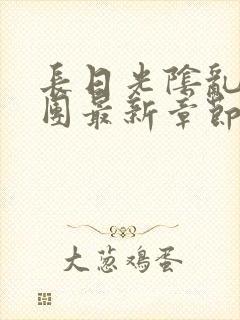 長日光陰亂
團最新章節
大葱鸡蛋